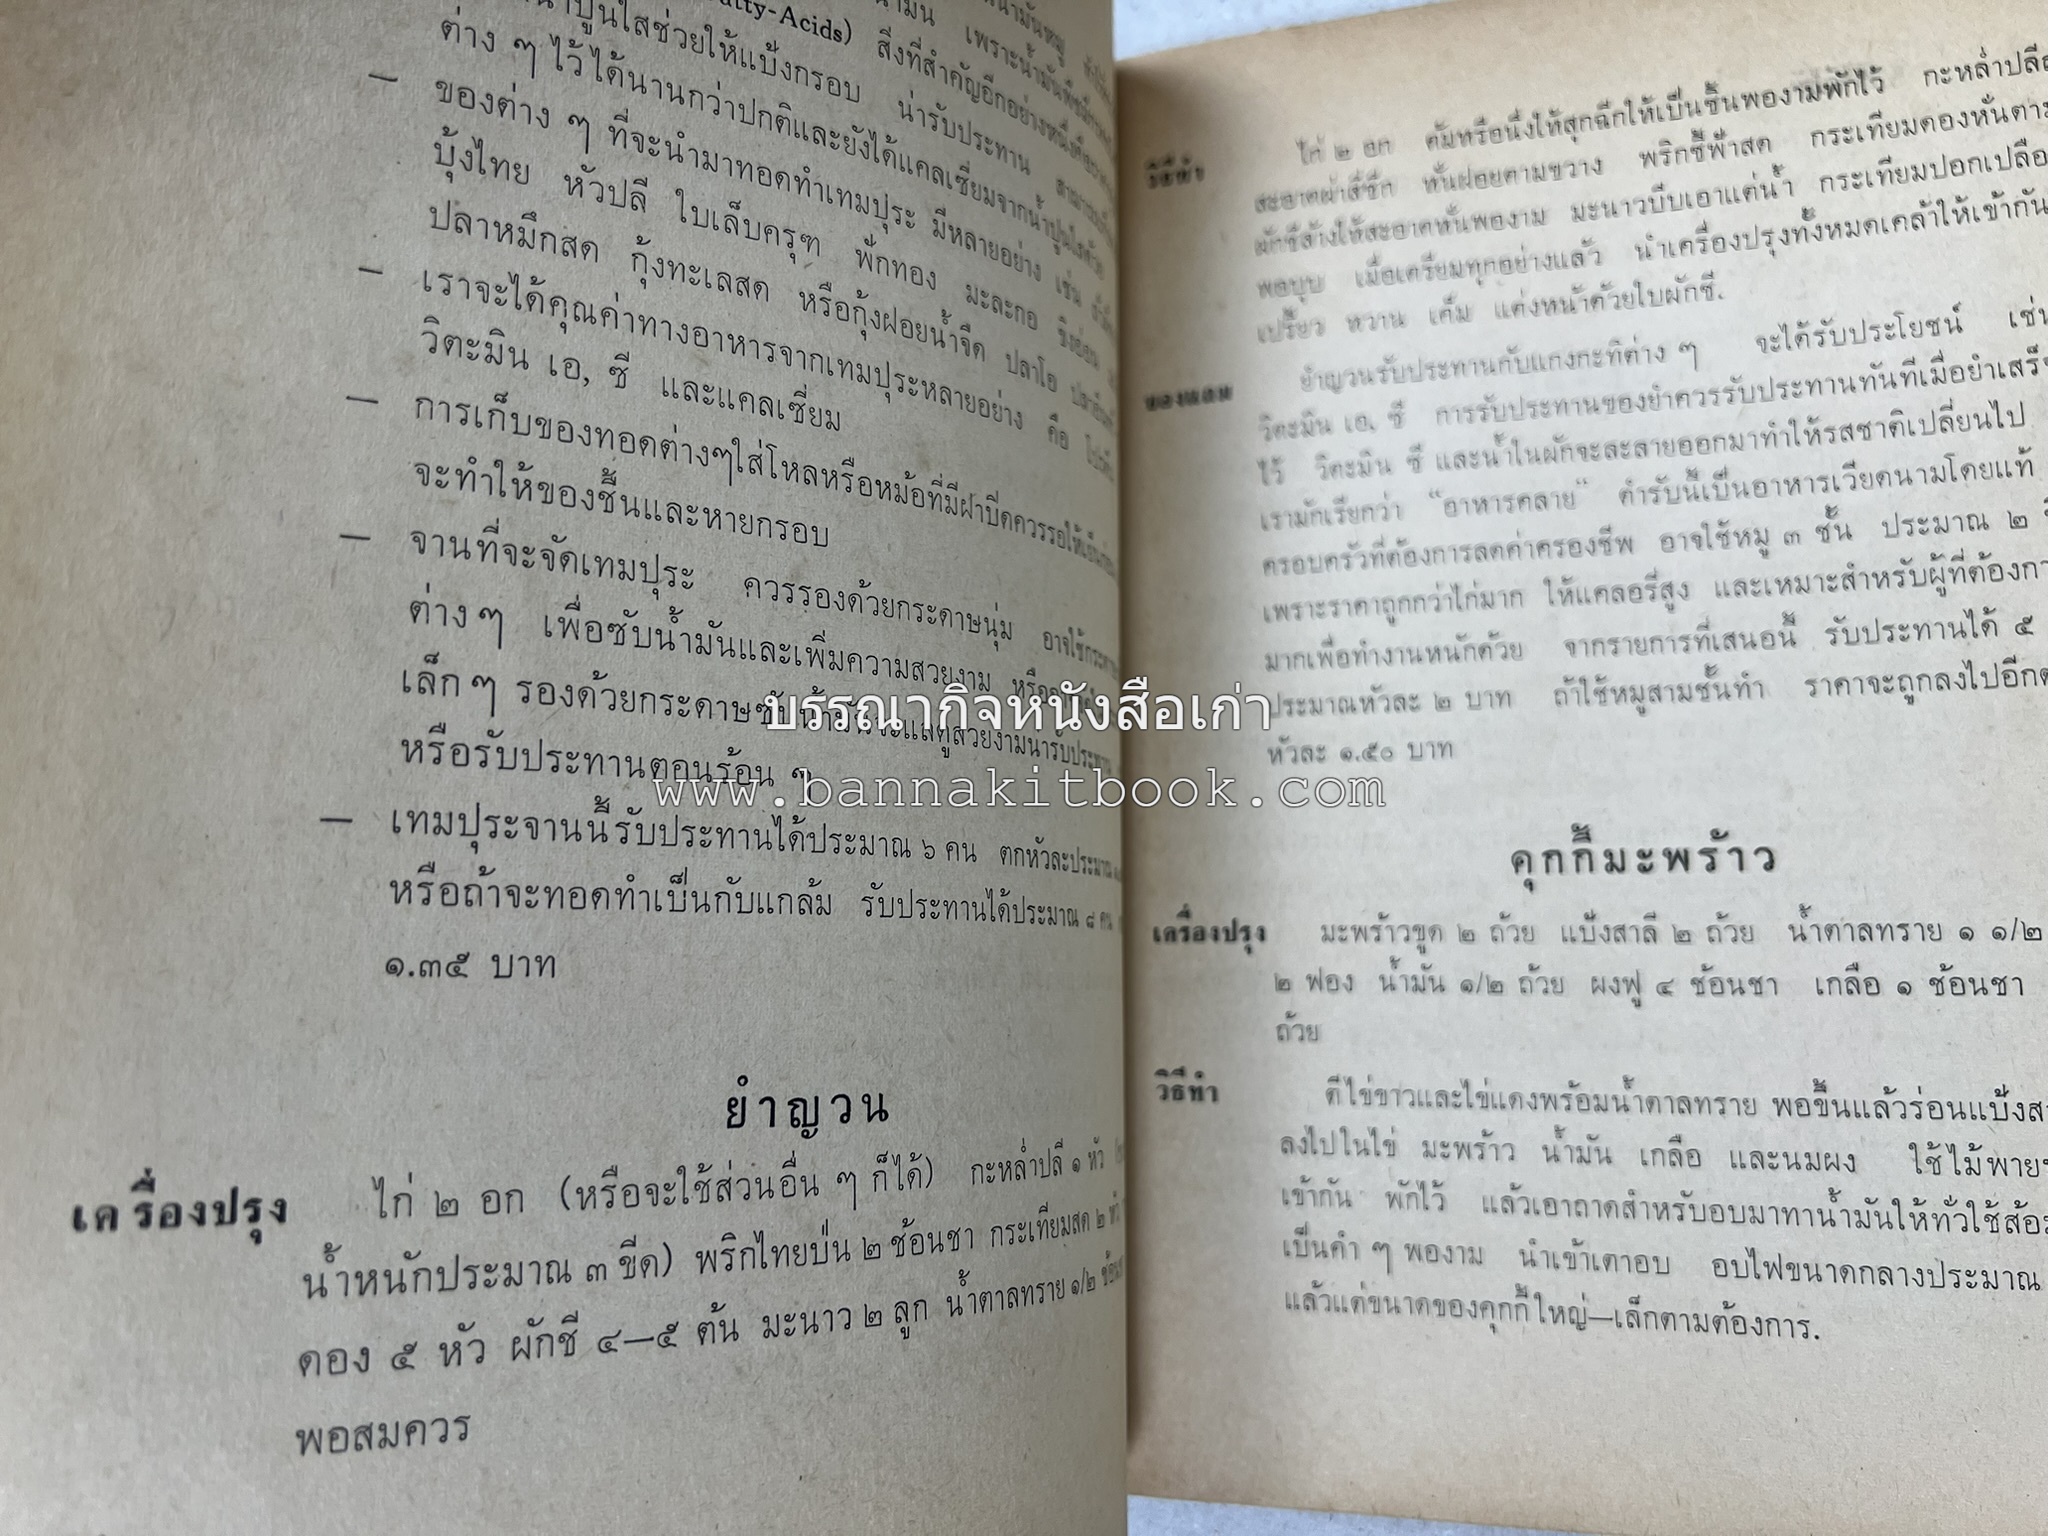 น้ำมันหมู
(Fatty-Acids) สิ่งที่สำคัญอีกอย่างหนึ่งคือ
น้ำมัน เพราะน้ำมันพืช
น้ำปูนใสช่วยให้แป้งกรอบ น่ารับประทาน
ต่าง ๆ ไว้ได้นานกว่าปกติและยังได้แคลเซี่ยมจากน้ำปูนใสด้วย
— ของต่าง ๆ ที่จะนำมาทอดทำเทมปุระ มีหลายอย่าง เช่น
บุ้งไทย หัวปลี ใบเล็บครุฑ ฟักทอง มะละกอ ขิงอ่อน
ปลาหมึกสด กุ้งทะเลสด หรือกุ้งฝอยน้ำจืด ปลาโอ
— เราจะได้คุณค่าทางอาหารจากเทมปุระหลายอย่าง คือ
วิตะมิน เอ, ซี และแคลเซี่ยม
— การเก็บของทอดต่างๆใส่โหลหรือหม้อที่มีฝาปิดควรรอให้เย็น
จะทำให้ของชื้นและหายกรอบ
— จานที่จะจัดเทมปุระ ควรรองด้วยกระดาษนุ่ม อาจใช้
ต่างๆ เพื่อซับน้ำมันและเพิ่มความสวยงาม
เล็กๆ รองด้วยกระดาษซับ
หรือรับประทานตอนร้อน ๆ
— เทมปุระจานนี้รับประทานได้ประมาณ ๖ คน ตกหัวละประมาณ
หรือถ้าจะทอดทำเป็นกับแกล้ม รับประทานได้ประมาณ ๘ คน
๑.๓๕ บาท
ยำญวน
เครื่องปรุง ไก่ ๒ อก (หรือจะใช้ส่วนอื่น ๆ ก็ได้) กะหล่ำปลี ๑ หัว
น้ำหนักประมาณ ๓ ขีด) พริกไทยป่น ๒ ช้อนชา กระเทียมสด ๒ หัว
ดอง ๕ หัว ผักชี ๔—๕ ต้น มะนาว ๒ ลูก น้ำตาลทราย ๑/๒
พอสมควร
วิธีทำ ไก่ ๒ อก ต้มหรือนึ่งให้สุกฉีกให้เป็นชิ้นพองามพักไว้ กะหล่ำปลี
สะอาดผ่าสี่ซีก หั่นฝอยตามขวาง พริกชี้ฟ้าสด กระเทียมดองหั่นตาม
ผักชีล้างให้สะอาดหั่นพองาม มะนาวบีบเอาแต่น้ำ กระเทียมปอกเปลือก
พอบุบ เมื่อเตรียมทุกอย่างแล้ว นำเครื่องปรุงทั้งหมดเคล้าให้เข้ากัน
เปรี้ยว หวาน เค็ม แต่งหน้าด้วยใบผักชี.
ของแถม ยำญวนรับประทานกับแกงกะทิต่าง ๆ จะได้รับประโยชน์ เช่น
วิตะมิน เอ, ซี การรับประทานของยำควรรับประทานทันทีเมื่อยำเสร็จ
ไว้ วิตะมิน ซี และน้ำในผักจะละลายออกมาทำให้รสชาติเปลี่ยนไป
เรามักเรียกว่า “อาหารคลาย” ตำรับนี้เป็นอาหารเวียดนามโดยแท้
ครอบครัวที่ต้องการลดค่าครองชีพ อาจใช้หมู ๓ ชั้น ประมาณ ๒
เพราะราคาถูกกว่าไก่มาก ให้แคลอรี่สูง และเหมาะสำหรับผู้ที่ต้องการ
มากเพื่อทำงานหนักด้วย จากรายการที่เสนอนี้ รับประทานได้ ๕
ประมาณหัวละ ๒ บาท ถ้าใช้หมูสามชั้นทำ ราคาจะถูกลงไปอีก
หัวละ ๑.๕๐ บาท
คุกกี้มะพร้าว
เครื่องปรุง มะพร้าวขูด ๒ ถ้วย แป้งสาลี ๒ ถ้วย น้ำตาลทราย ๑ ๑/๒
๒ ฟอง น้ำมัน ๑/๒ ถ้วย ผงฟู ๔ ช้อนชา เกลือ ๑ ช้อนชา
ถ้วย
วิธีทำ ตีไข่ขาวและไข่แดงพร้อมน้ำตาลทราย พอขึ้นแล้วร่อนแป้ง
ลงไปในไข่ มะพร้าว น้ำมัน เกลือ และนมผง ใช้ไม้พาย
เข้ากัน พักไว้ แล้วเอาถาดสำหรับอบมาทาน้ำมันให้ทั่วใช้ส้อม
เป็นคำ ๆ พองาม นำเข้าเตาอบ อบไฟขนาดกลางประมาณ
แล้วแต่ขนาดของคุกกี้ใหญ่—เล็กตามต้องการ.
บรรณากิจหนังสือเก่า
www.bannakitbook.com